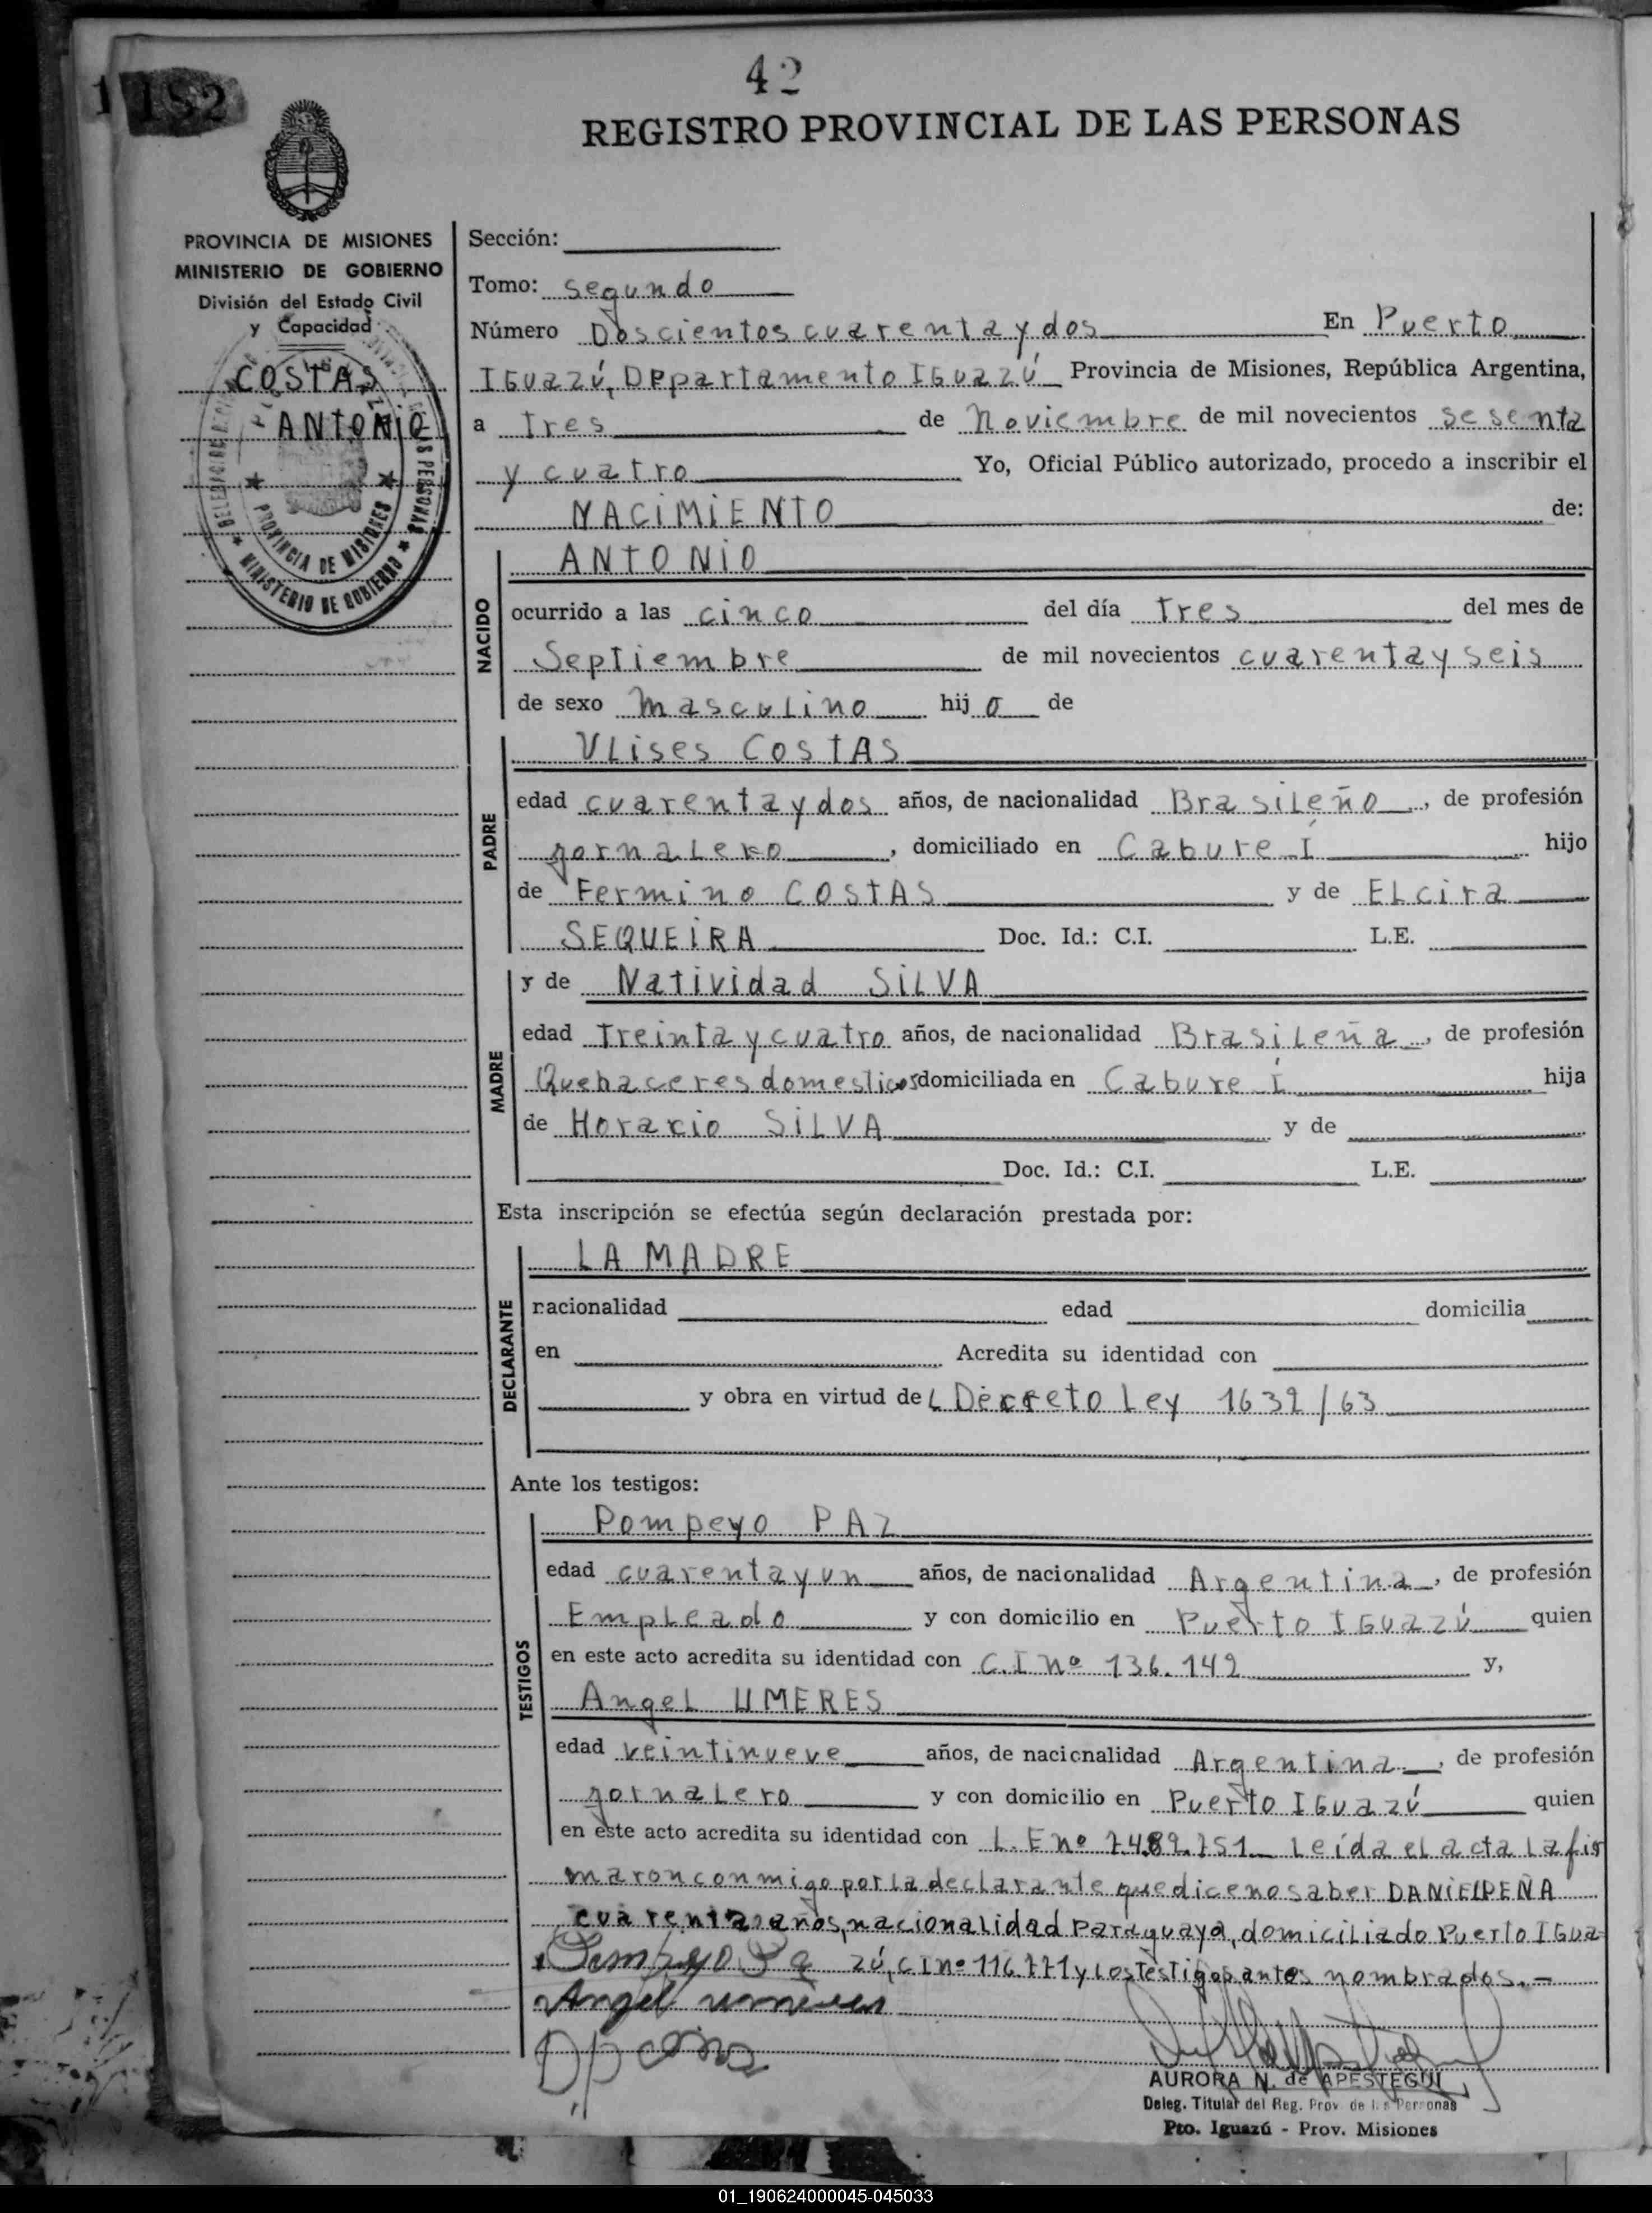 42
1 152
REGISTRO PROVINCIAL DE LAS PERSONAS
PROVINCIA DE MISIONES
MINISTERIO DE GOBIERNO
División del Estado Civil
y Capacidad
COSTAS
ANTONIO
PROVINCIA DE MISIONES
MINISTERIO DE GOBIERNO
Sección:
Tomo: segundo
Número Doscientos cuarenta y dos En Puerto
IGuazzú, Departamento IGuazú Provincia de Misiones, República Argentina,
a Tres de Noviembre de mil novecientos sesenta
y cuatro Yo, Oficial Público autorizado, procedo a inscribir el
NACIMIENTO de:
NACIDO
ANTONIO
ocurrido a las cinco del día Tres del mes de
Septiembre de mil novecientos cuarenta y seis
de sexo masculino hij o de
PADRE
Ulises COSTAS
edad cuarenta y dos años, de nacionalidad Brasileño, de profesión
jornalero, domiciliado en Cabure Í hijo
de Fermino COSTAS y de Elcira
SEQUEIRA Doc. Id.: C.I. L.E.
MADRE
y de Natividad SILVA
edad Treinta y cuatro años, de nacionalidad Brasileña, de profesión
Quehaceres domesticos domiciliada en Cabure Í hija
de Horacio SILVA y de
Doc. Id.: C.I. L.E.
Esta inscripción se efectúa según declaración prestada por:
DECLARANTE
LA MADRE
nacionalidad edad domicilia
en Acredita su identidad con
y obra en virtud del Decreto Ley 1632/63
Ante los testigos:
TESTIGOS
Pompeyo PAZ
edad cuarenta y un años, de nacionalidad Argentina, de profesión
Empleado y con domicilio en Puerto IGuazú quien
en este acto acredita su identidad con C.I nº 136.149 y,
Angel UMERES
edad veintinueve años, de nacionalidad Argentina, de profesión
jornalero y con domicilio en Puerto IGuazú quien
en este acto acredita su identidad con L.E nº 7.489.751 Leída el acta la fir
maron conmigo por la declarante que dice no saber DANIEL PEÑA
cuarenta años, nacionalidad Paraguaya, domiciliado Puerto IGua
Pompeyo Paz zú, C I nº 116.771 y los testigos antes nombrados.-
Angel umeres
D Peña
AURORA N. de APESTEGUI
Deleg. Titular del Reg. Prov. de las Personas
Pto. Iguazú - Prov. Misiones
01_190624000045-045033